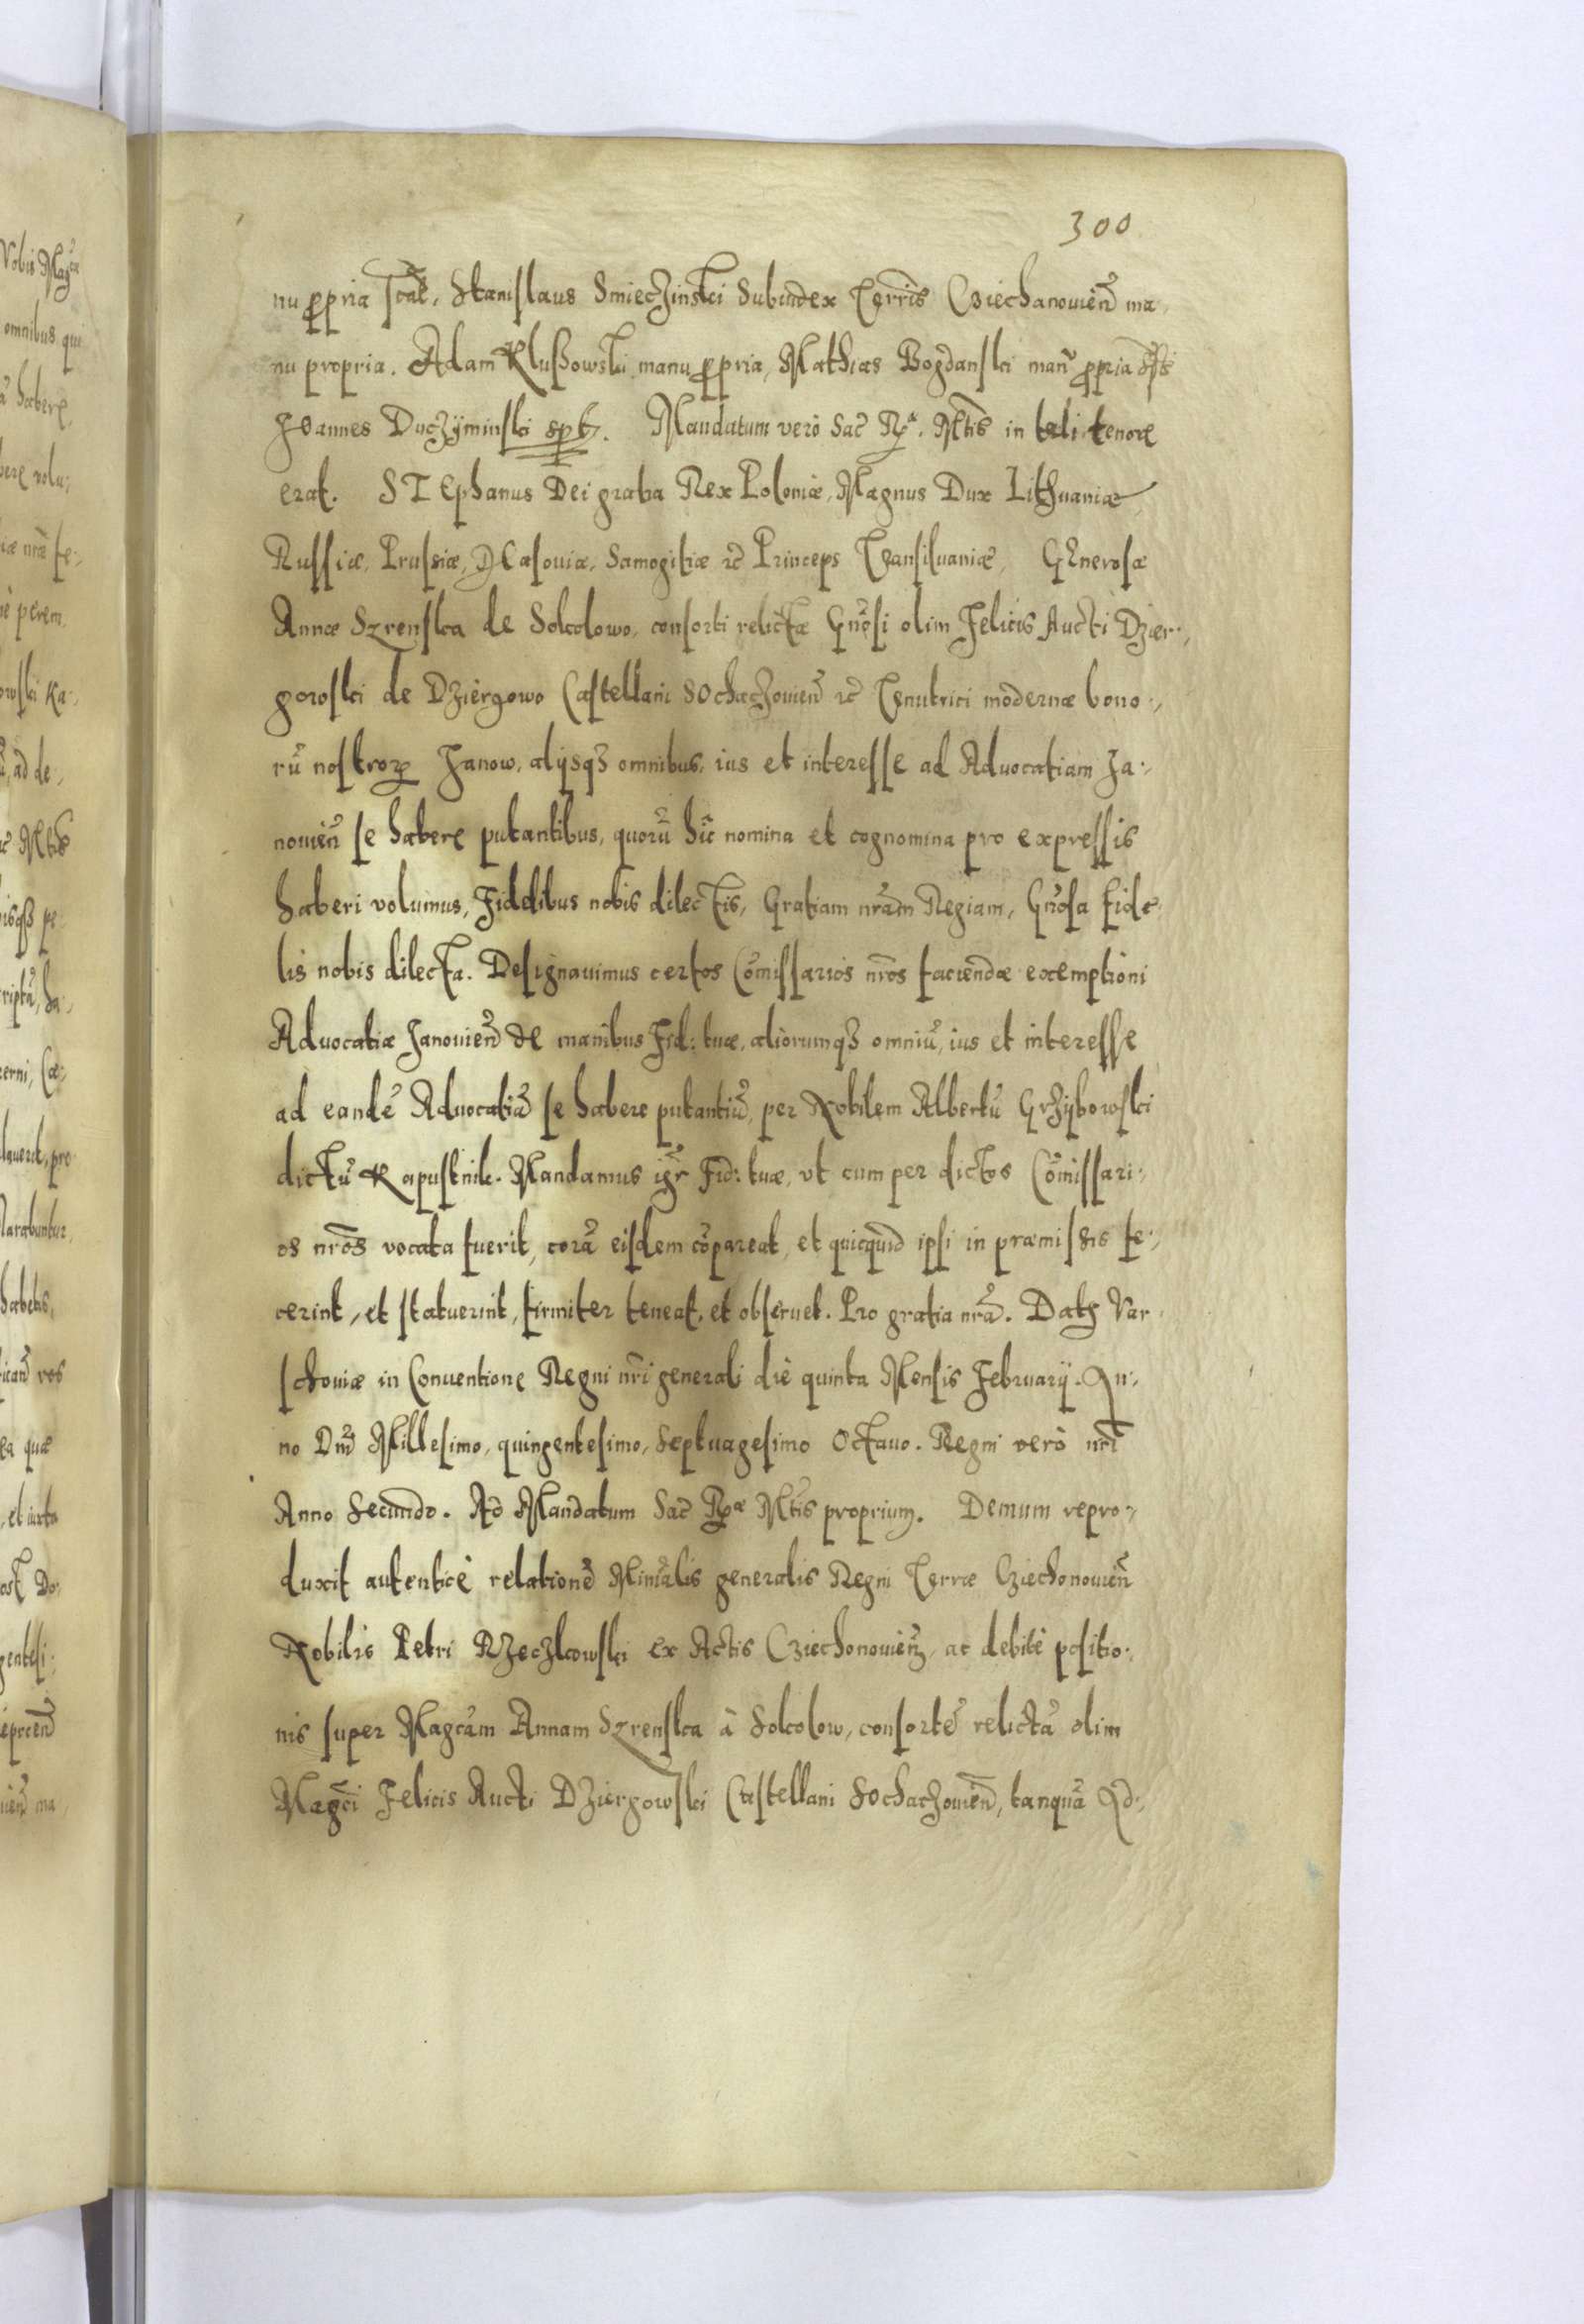 300
nu ꝓpria , Stanislaus Smieczinski Subiudex Terrīs Cziechanouien̄ ma,
nu propria. Adam Klussowski manu ꝓpria, Mathias Bogdanski manū ꝓpria
Joannes Duczÿminski . Mandatum verò Sac̄ Rᵃ. Mtīs in tali tenore
erat. STEphanus Dei gratia Rex Poloniæ, Magnus Dux Lithuaniæ
Russiæ, Prussiæ, Masouiæ, Samogitiæ ꝛc̄ Princeps Transiluaniæ, GEnerosæ
Annæ Szrenska de Sokolowo, consorti relictæ Gn̄osi olim Felicis Aucti Dzier-,
gowski de Dziergowo Castellani SOchaczouien̄ ꝛc̄ Tenutrici modernæ bono-,
rū nostroꝝ Janow, alijsqꝫ omnibus, ius et interesse ad Aduocatiam Ja-,
nouien̄ se habere putantibus, quorū hic nomina et cognomina pro expressis
haberi volumus, Fidelibus nobis dilectis, Gratiam nr̄am Regiam, Gn̄osa fide-
lis nobis dilecta. Designauimus certos Com̄issarios nr̄os faciendæ exemptioni
Aduocatiæ Janouien̄ de manibus Fid: tuæ, aliorumqꝫ omniū, ius et interesse
ad eandē Aduocatiā se habere putantiū, per Nobilem Albertū Grzÿbowski
dictū Kapustnik. Mandamus igr̄ Fid: tuæ, vt cum per dictos Com̄issari-,
os nr̄os vocata fuerit, corā eisdem cōpareat, et quicquid ipsi in præmissis fe-,
cerint, et statuerint, firmiter teneat, et obseruet. Pro gratia nr̄a. Datꝫ Var-
schouiæ in Conuentione Regni nr̄i generali die quinta Mensis Februarij. An-,
no Dnī Millesimo, quingentesimo, Septuagesimo Octauo. Regni verò nr̄i
Anno Secundo. Ad Mandatum Sac̄ Rᵃᵉ Mtīs proprium. Demum repro-,
duxit autenticè relationē Minr̄ialis generalis Regni Terræ Cziechonouien̄
Nobilis Petri Rzeczkowski ex Actis Cziechonouien̄, ac debitè positio-,
nis super Magcām Annam Szrenska à Sokolow, consortē relictā olim
Magcī Felicis Aucti Dziergowski Castellani Sochaczouien̄, tanquā Ad-,